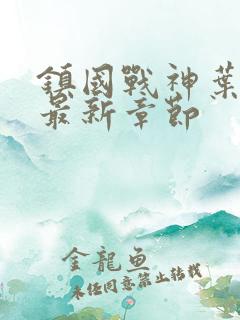 鎮國戰神葉
最新章節
金龍魚
未经同意禁止转载